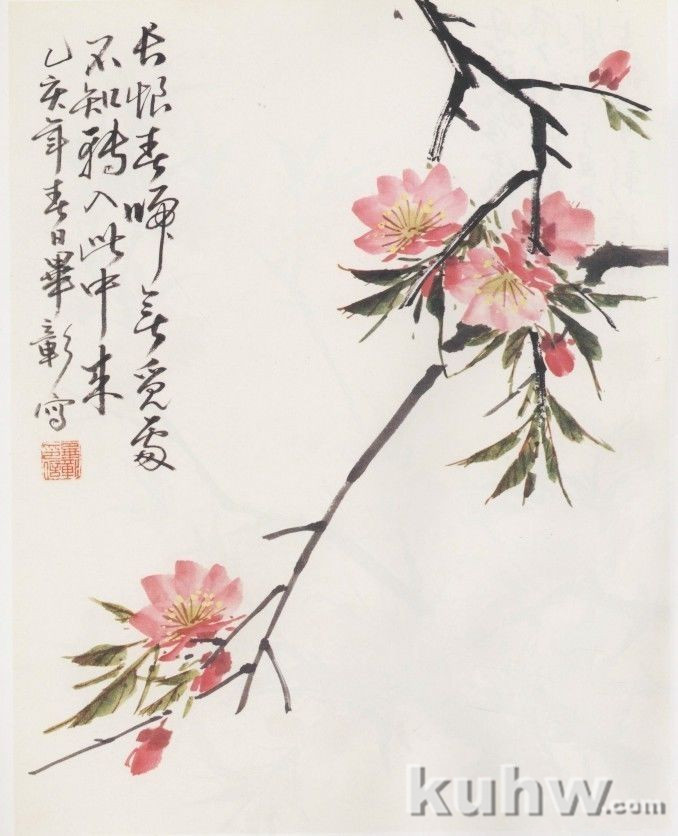 长恨春归无觅处
不知转入此中来
乙亥年春日毕彰写
kuhw.com